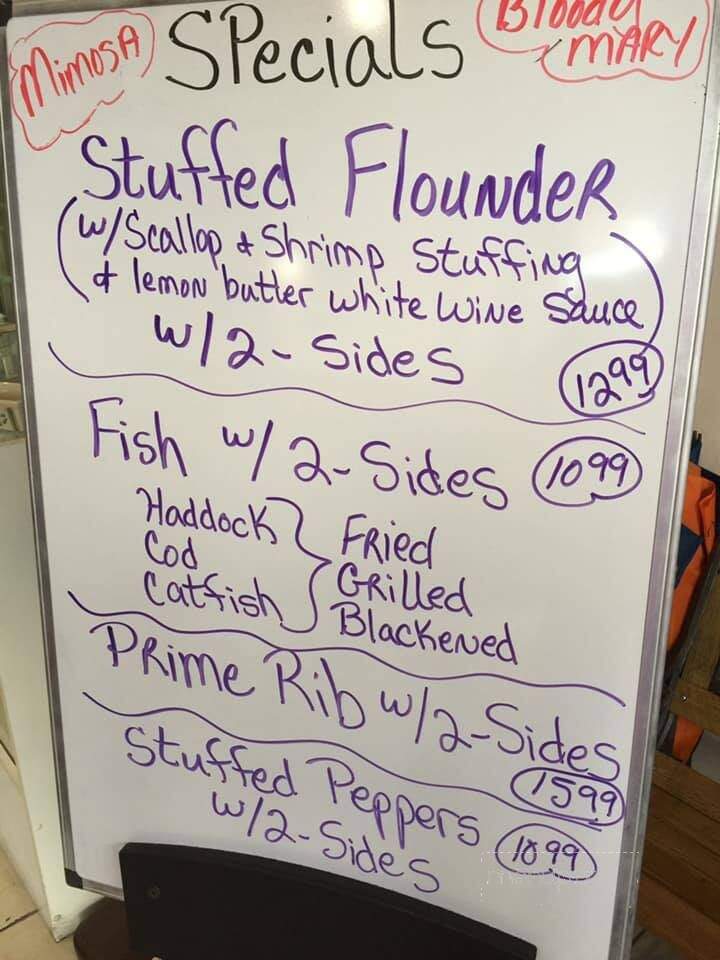 Mimosa
Specials
Bloody
Mary
Stuffed Flounder
(w/Scallop & Shrimp Stuffing
& lemon butter white wine Sauce)
w/2- Sides
12.99
Fish w/ 2-Sides
10.99
Haddock
Cod
Catfish
Fried
Grilled
Blackened
Prime Rib w/2-Sides
15.99
Stuffed Peppers
w/2-Sides
10.99